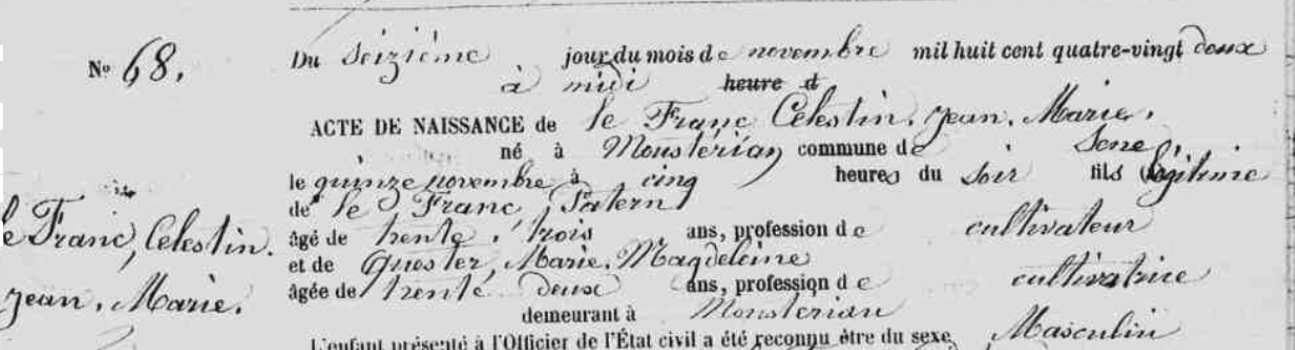 N° 68.
Du Seizième jour du mois de novembre mil huit cent quatre-vingt deux
à midi heure d
ACTE DE NAISSANCE de le Franc Celestin. jean. Marie.
né à Monstérian commune de Sene
le quinze novembre à cinq heures du soir fils légitime
de le Franc, Patern
âgé de trente. trois ans, profession de cultivateur
et de Quester, Marie. Magdeleine
âgée de trente deux ans, profession de cultivatrice
demeurant à Monsterian
L'enfant présenté à l'Officier de l'État civil a été reconnu être du sexe Masculin
le Franc, Celestin.
jean. Marie.